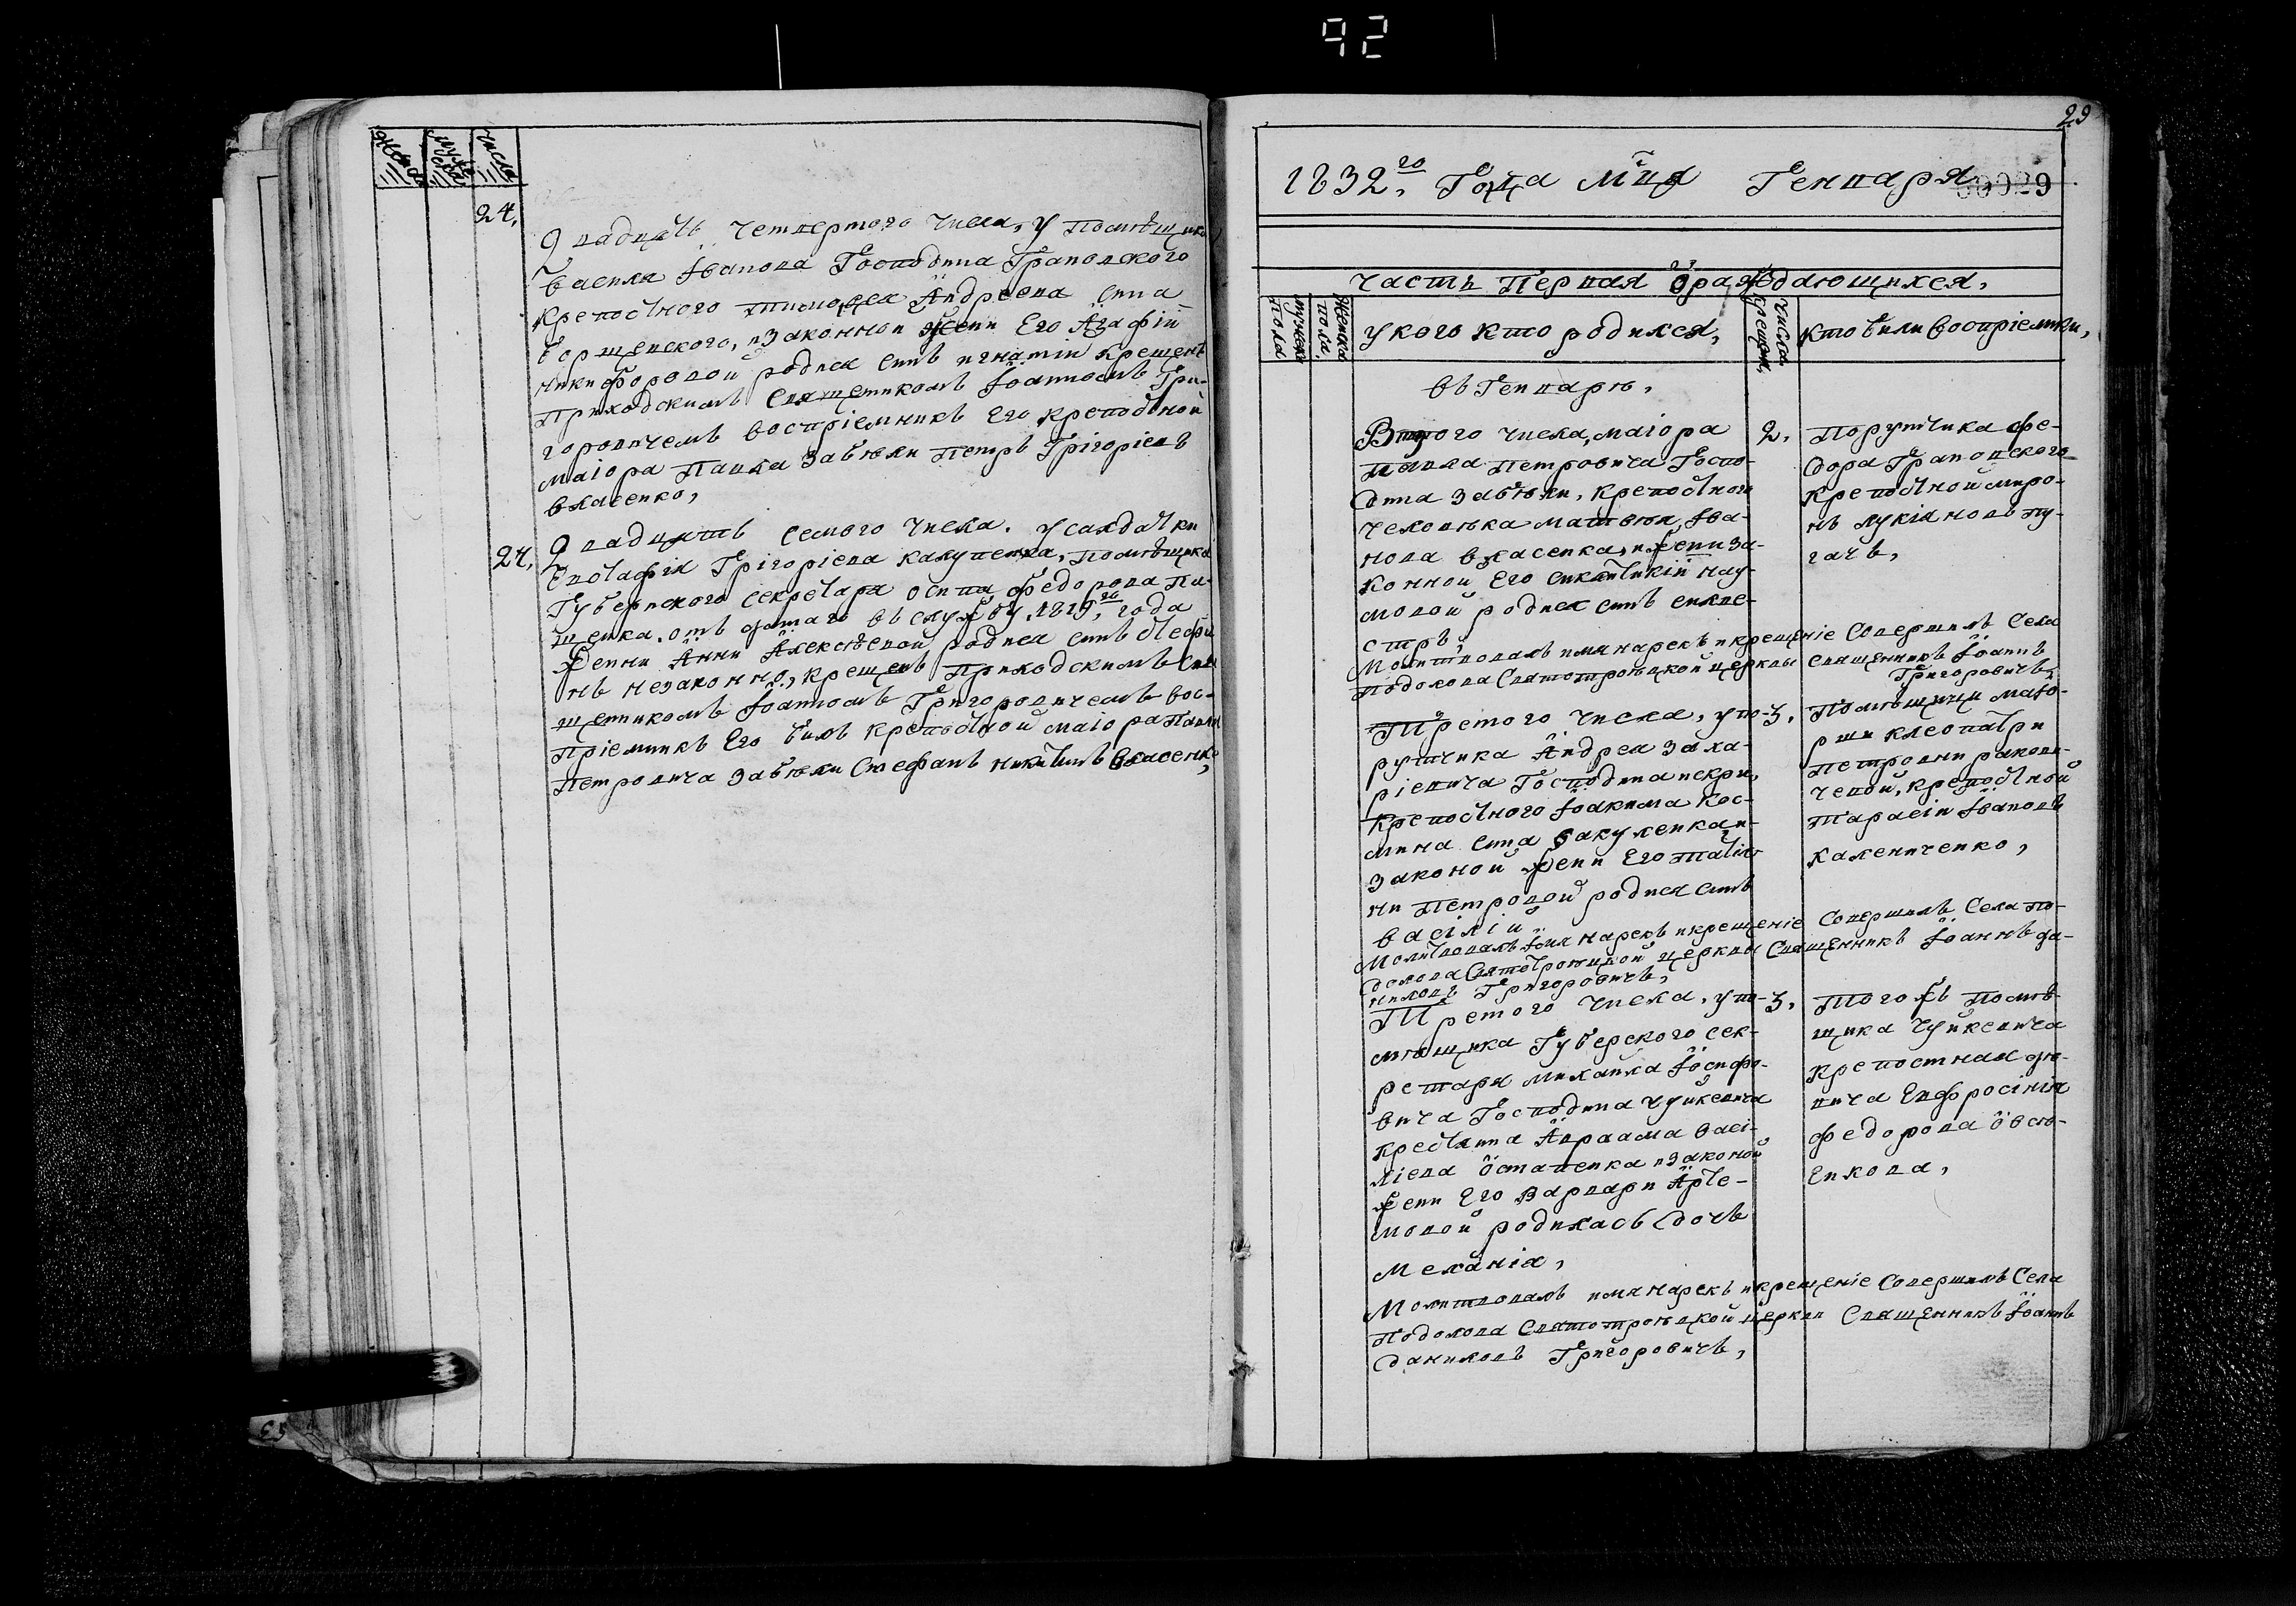 92
Женска
мужеска
Числа
24,
Двадцать четвертого числа, у помѣщика
василя Іванова Господина Грановского
крепостного тимофея Андреева сина
Борщевского, изаконной жени Его Агафій
никифоровой родился синъ игнатій крещенъ
Приходскимъ Священикомъ Іоанномъ Гри-
горовичемъ воспріемникъ Его крепостной
маіора Павла Забѣли Петръ Грігоріевъ
власенко,
27, Двадцять семого числа. у салдатки
Евстафія Грігоріева какуненка, помѣщика
Губернского секретара осипа федорова
щенка. отъ данаго въ службу. 1819го. года
жени Анни Алексѣевой родился синъ Стефа
нъ незаконно, крещенъ Приходскимъ Свя
щенникомъ Іоанномъ Григоровичемъ вос-
пріемникъ Его билъ крепостной маіора Павла
Петровича Забѣли Стефанъ никитинъ Власенко,
29
00029
1832го. Года мця Генваря
Часть Первая Ораждающихся,
мужска пола
Женска пола,
укого кто родился,
Числа крещен,
кто били воспріемники,
въ Генварѣ,
Второго числа, маіора
павла Петровича Госпо-
дина Забѣли, крепостного
человѣка матвѣя Іва-
нова власенка, ижени за-
конной Его синклитикій нау-
мовой родился синъ силве-
стръ,
2, Порутчика фе-
дора Грановского
крепостной миро-
нъ лукіяновъ пу-
гачъ,
Молитвовалъ имя нарекъ икрещеніе Совершилъ Села
Подолова Святотроѣцкой церкви священникъ Іоаннъ
Григоровичъ,
Третого числа, упо-
рутчика Андрея Заха-
ріевича Господина искри,
крепостного Іоакима Кос-
мина сина Бакуленка, и-
законой жени Его татія-
ни Петровой родился синъ
васілій
3, Помѣщици маіо-
рши клеопатри
Петровни ракови-
чевой, крепостной
тарасій Івановъ
каленниченко,
Молитвовалъ Імя нарекъ икрещеніе Совершилъ Села По-
долова Святотроѣцкой церкви Священникъ Іоаннъ да-
ниловъ Григоровичъ,
Третого числа, упо-
мѣщика Губерского сек-
ретаря михайла Іосифо-
вича Господина чуйкевича
крестянина Авраама васі-
ліева Остапенка изаконой
жени Его Варвари Арте-
мовой родилась дочъ
Меланія,
3, Того жъ помѣ-
щика Чуйкевича
крепостная дѣ-
вича Евфросінія
федорова Овсѣ-
енкова,
Молитвовалъ имя нарекъ икрещеніе Совершилъ Села
Подолова Святотроѣцкой церкви Священникъ Іоаннъ
даниловъ Григоровичъ,